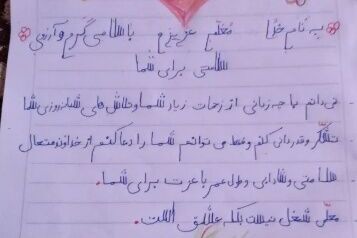 به نام خدا معلم عزیزم با سلامی گرم و آرزوی
سلامتی برای شما
نمی دانم با چه زبانی از زحمات زیاد شما و تلاش های شبانه روزی شما
تشکر و قدردانی کنم و فقط می توانم شما را دعا کنم از خداوند متعال
سلامتی و شادابی و طول عمر با عزت برای شما.
معلمی شغل نیست بلکه عشق است.